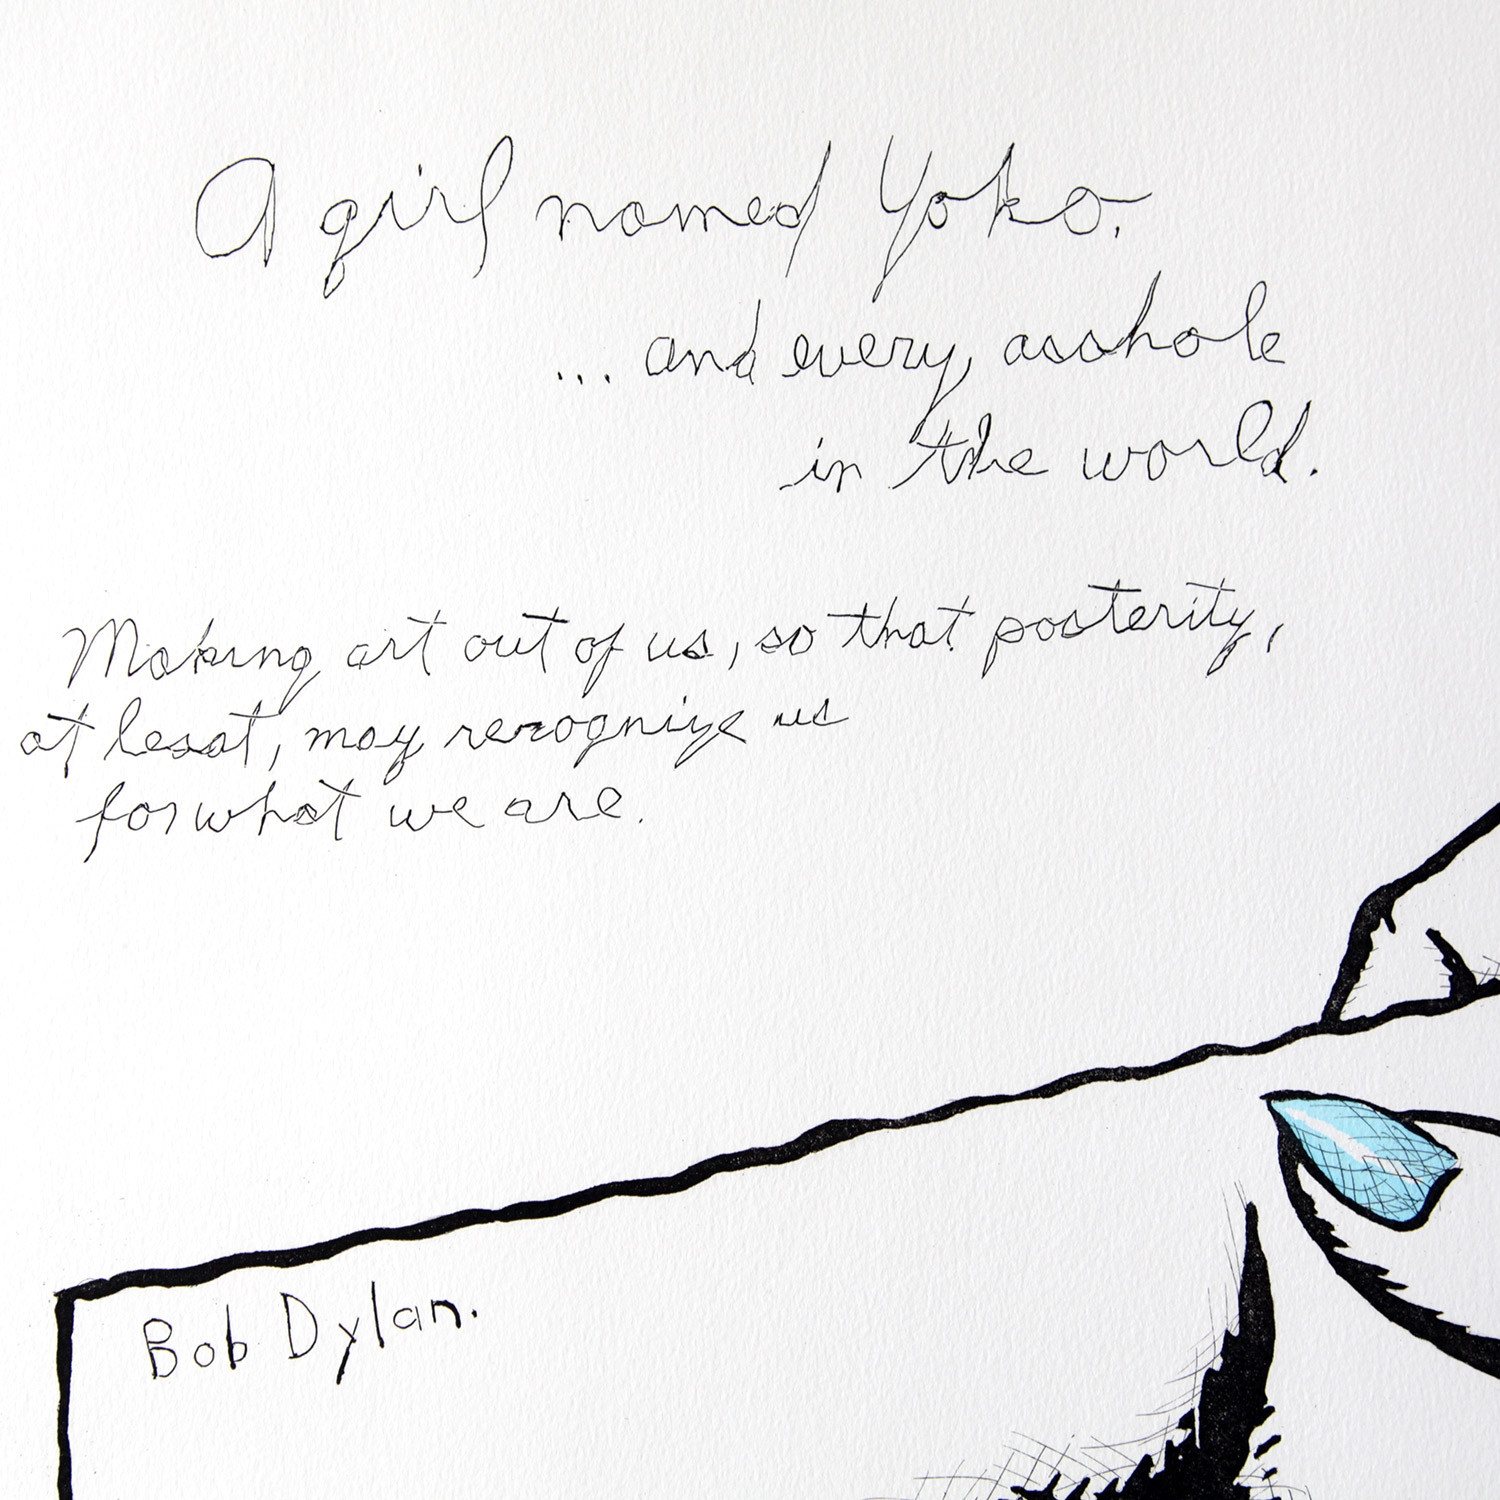 A girl named Yoko.
... and every asshole
in the world.
Making art out of us, so that posterity,
at lesat, may recognize us
for what we are.
Bob Dylan.